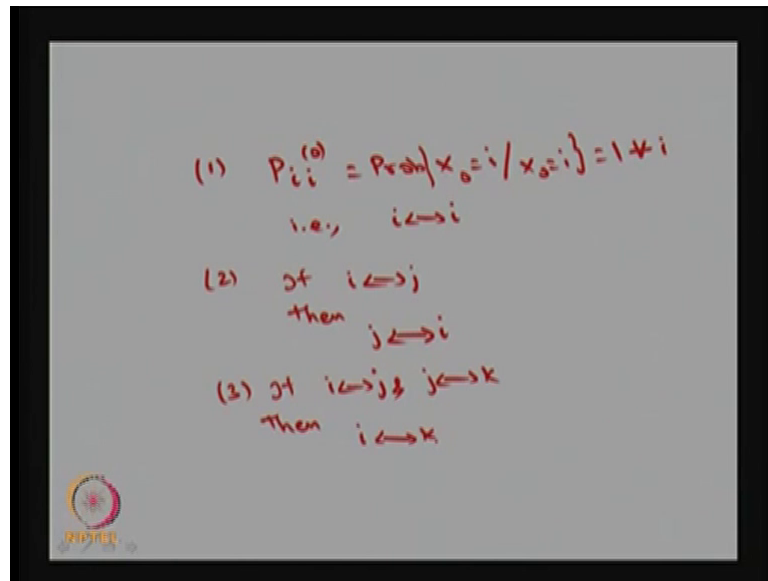 (1) P_{ii}^{(0)} = Prob{X_0 = i / X_0 = i} = 1 ∀ i
i.e., i ↔ i
(2) If i ↔ j
then j ↔ i
(3) If i ↔ j & j ↔ k
then i ↔ k
NPTEL